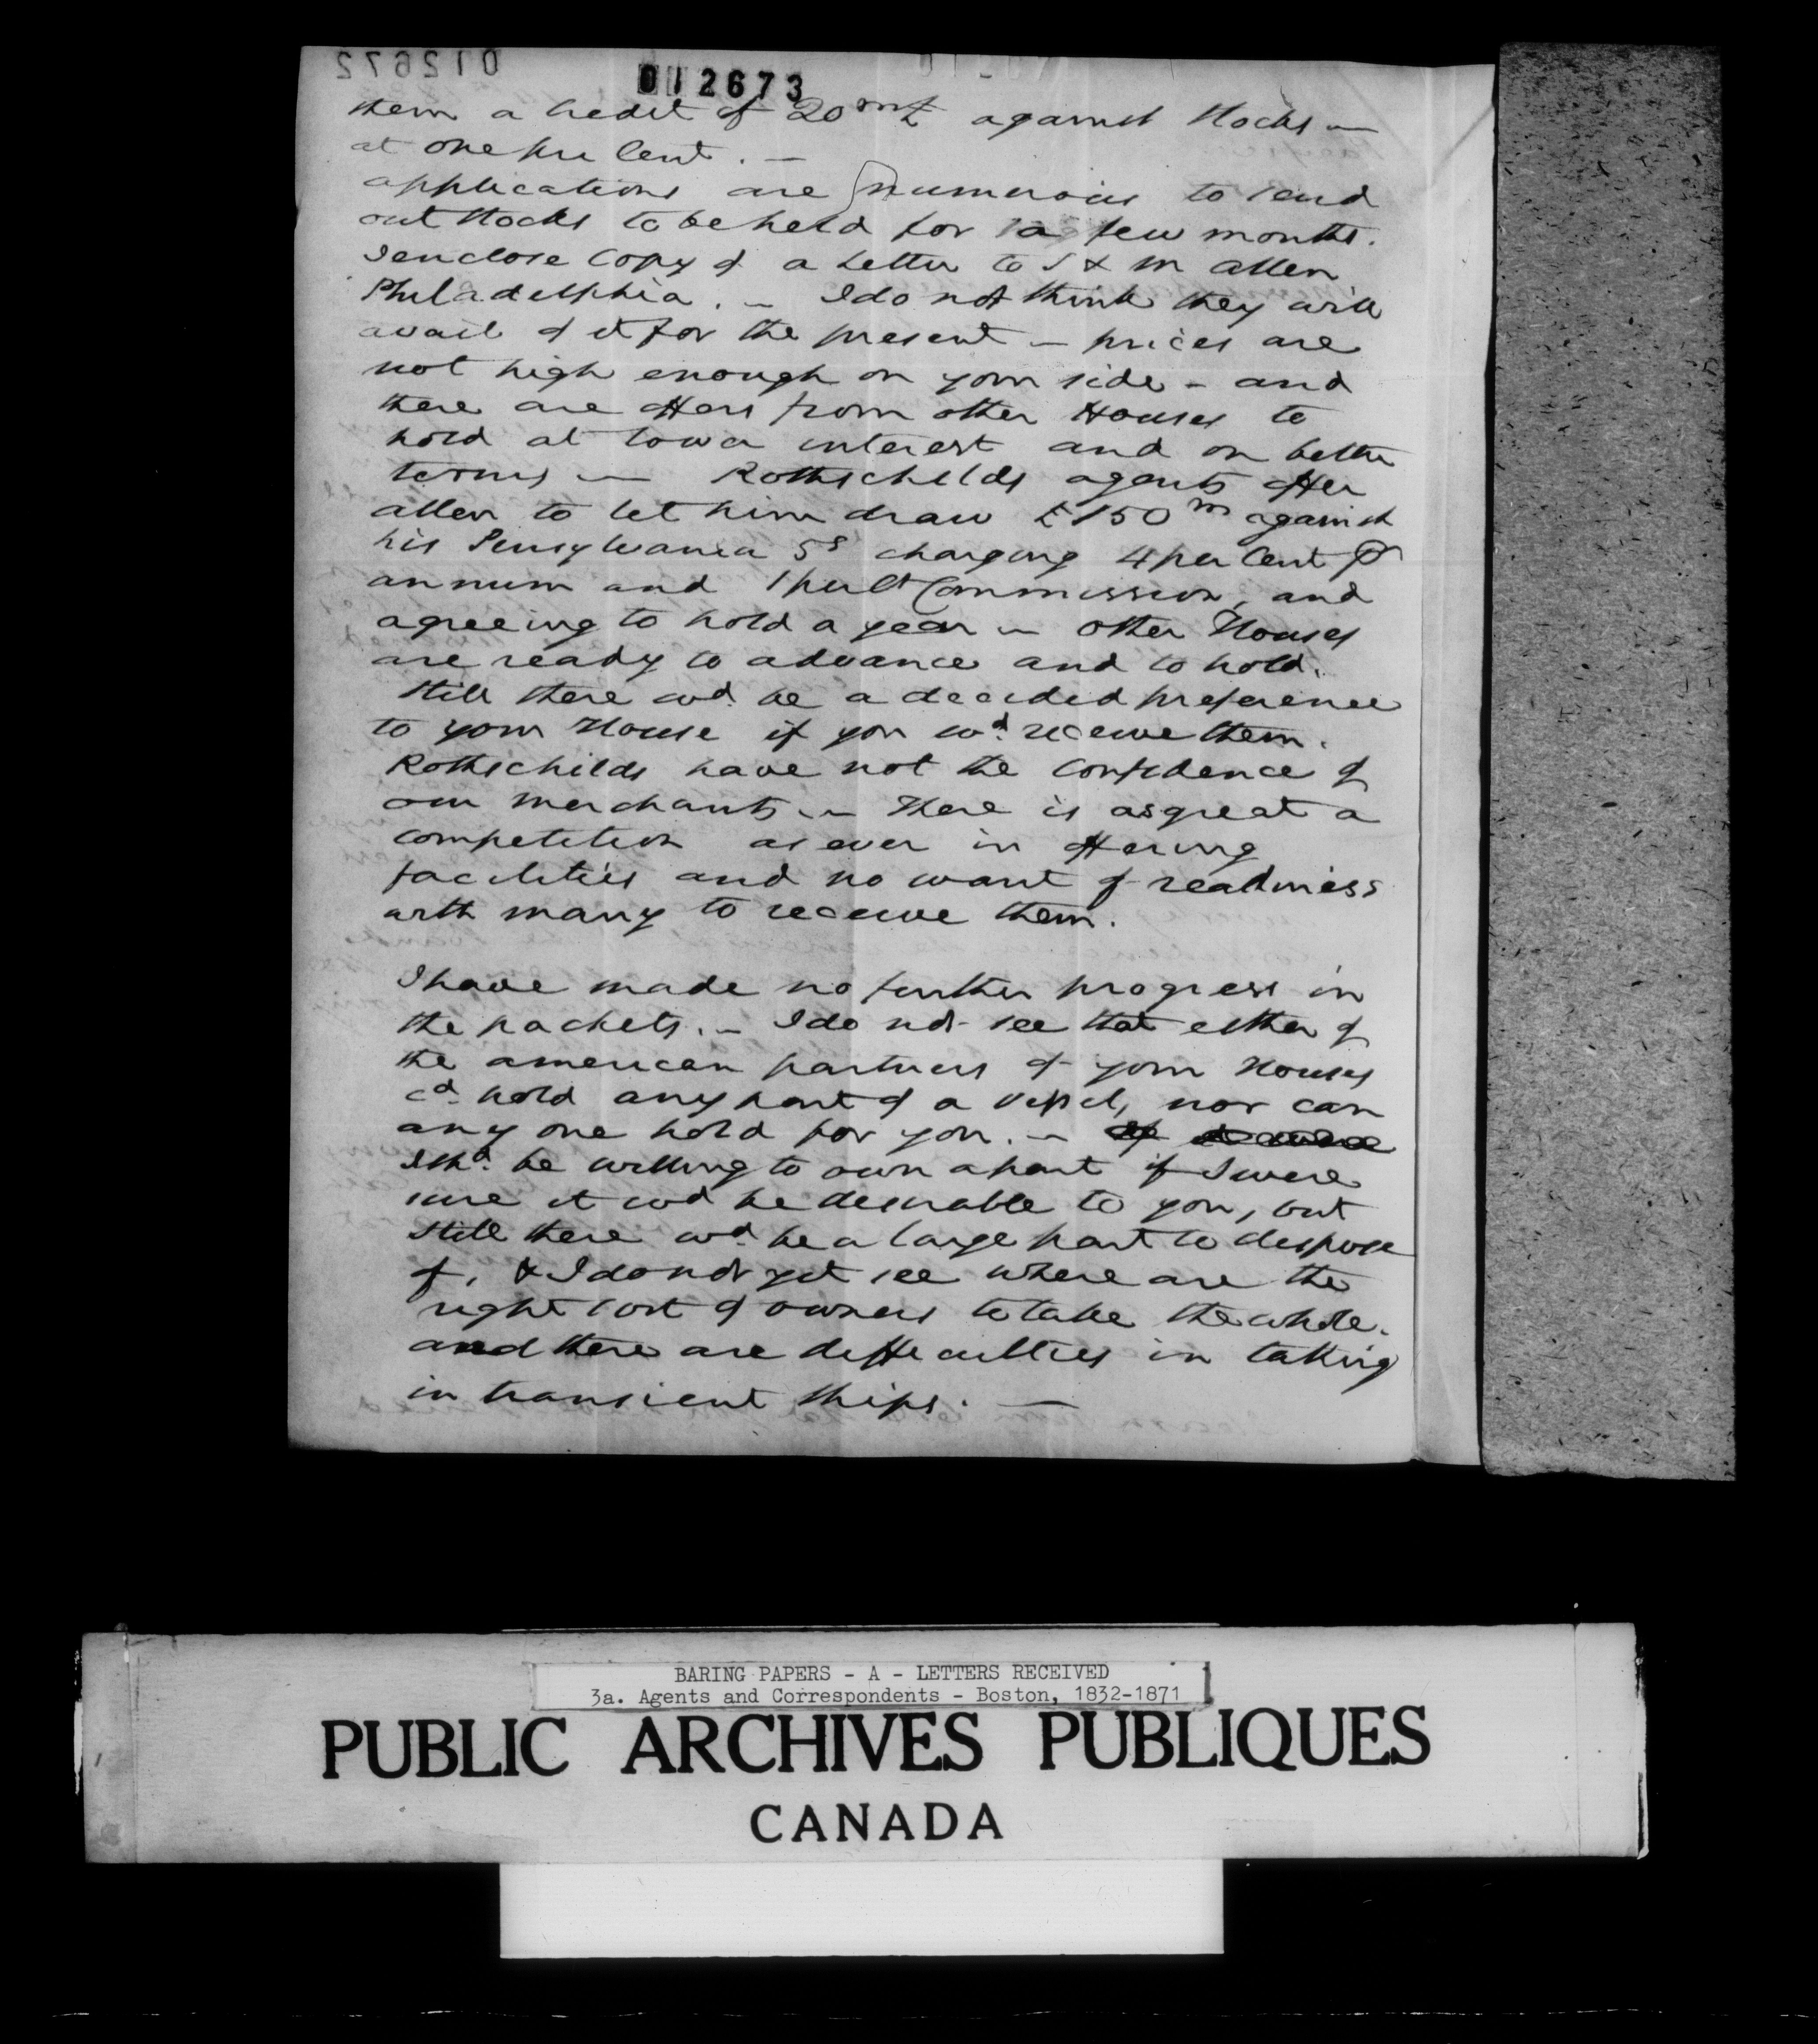 012672
012673
them a credit of 20 m £ against Stocks —
at one per Cent. —
applications are numerous to send
out Stocks to be held for a few months.
I enclose Copy of a Letter to S & M Allen
Philadelphia. — I do not think they will
avail of it for the present — prices are
not high enough on your side — and
there are offers from other Houses to
hold at lower interest and on better
terms — Rothschilds agents offer
Allen to let him draw £150 m against
his Pensylvania 5s charging 4 per Cent ⅌
annum and 1 per Ct Commission, and
agreeing to hold a year — other Houses
are ready to advance and to hold.
Still there wd. be a decided preference
to your House if you wd. receive them.
Rothschilds have not the Confidence of
our merchants — There is as great a
competition as ever in offering
facilities and no want of readiness
with many to receive them.
I have made no further progress in
the packets. — I do not see that either of
the american partners of your Houses
cd. hold any part of a vessel, nor can
any one hold for you. —
I shd. be willing to own a part if I were
sure it wd be desirable to you, but
still there wd. be a large part to dispose
of, & I do not yet see where are the
right sort of owners to take the whole.
and there are difficulties in taking
in transient ships. —
BARING PAPERS - A - LETTERS RECEIVED
3a. Agents and Correspondents - Boston, 1832-1871
PUBLIC ARCHIVES PUBLIQUES
CANADA